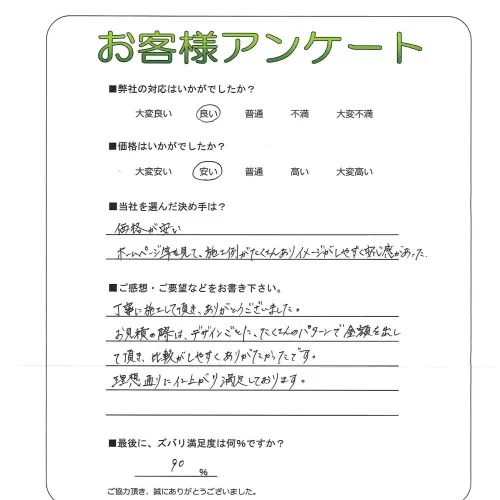 お客様アンケート
■弊社の対応はいかがでしたか？
大変良い 良い 普通 不満 大変不満
■価格はいかがでしたか？
大変安い 安い 普通 高い 大変高い
■当社を選んだ決め手は？
価格が安い
ホームページ等を見て、施工例がたくさんありイメージがしやすく安心感があった.
■ご感想・ご要望などをお書き下さい。
丁寧に施工して頂き、ありがとうございました。
お見積の際は、デザインごとに、たくさんのパターンで金額を出し
て頂き、比較がしやすくありがたかったです。
理想通りに仕上がり満足しております。
■最後に、ズバリ満足度は何％ですか？
90 ％
ご協力頂き、誠にありがとうございました。